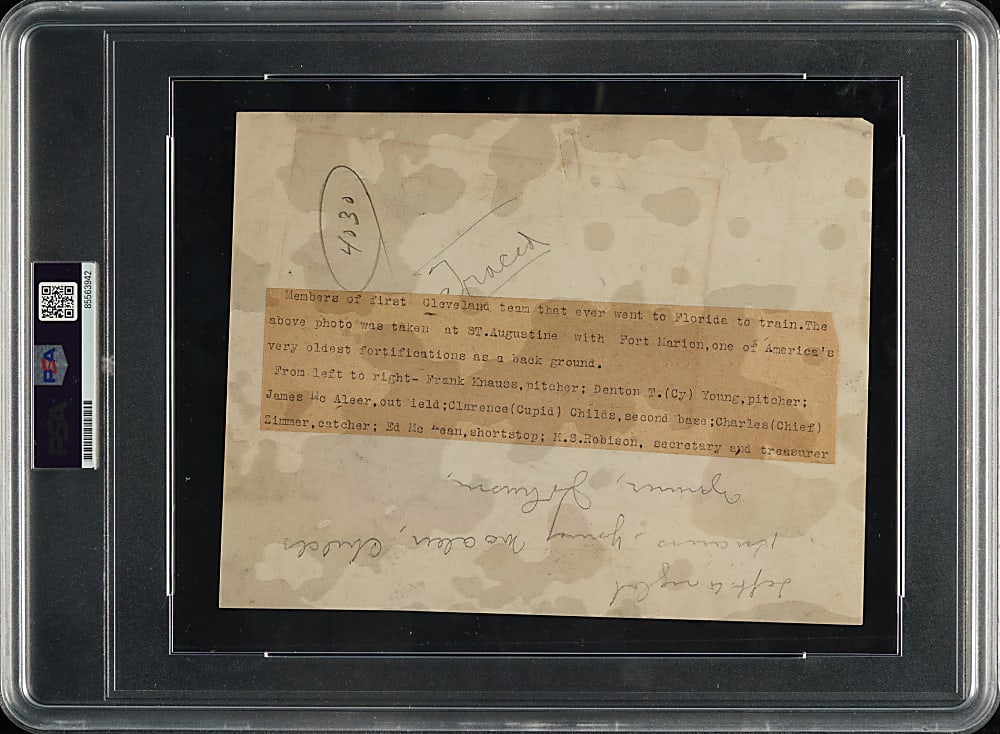 4030
Traced
Members of first Cleveland team that ever went to Florida to train.The
above photo was taken at ST.Augustine with Fort Marion,one of America's
very oldest fortifications as a back ground.
From left to right- Frank Knauss,pitcher; Denton T.(Cy) Young,pitcher;
James Mc Aleer,out ield;Clarence(Cupid) Childs,second base;Charles(Chief)
Zimmer,catcher; Ed Mc ean,shortstop; M.S.Robison, secretary and treasurer
Left to right
Knauss, Young McAleer, Childs
Zimmer,
PSA
85563942
PSA